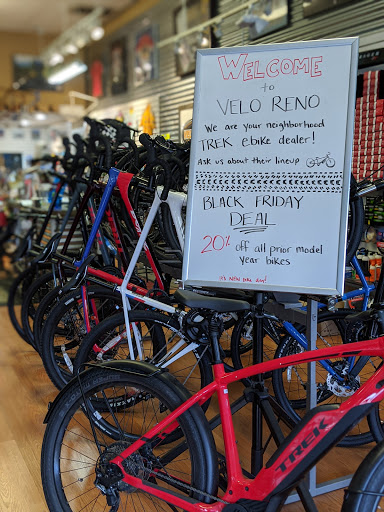 WELCOME
to
VELO RENO
We are your neighborhood
TREK ebike dealer!
Ask us about their lineup
BLACK FRIDAY
DEAL
20% off all prior model
year bikes
TREK